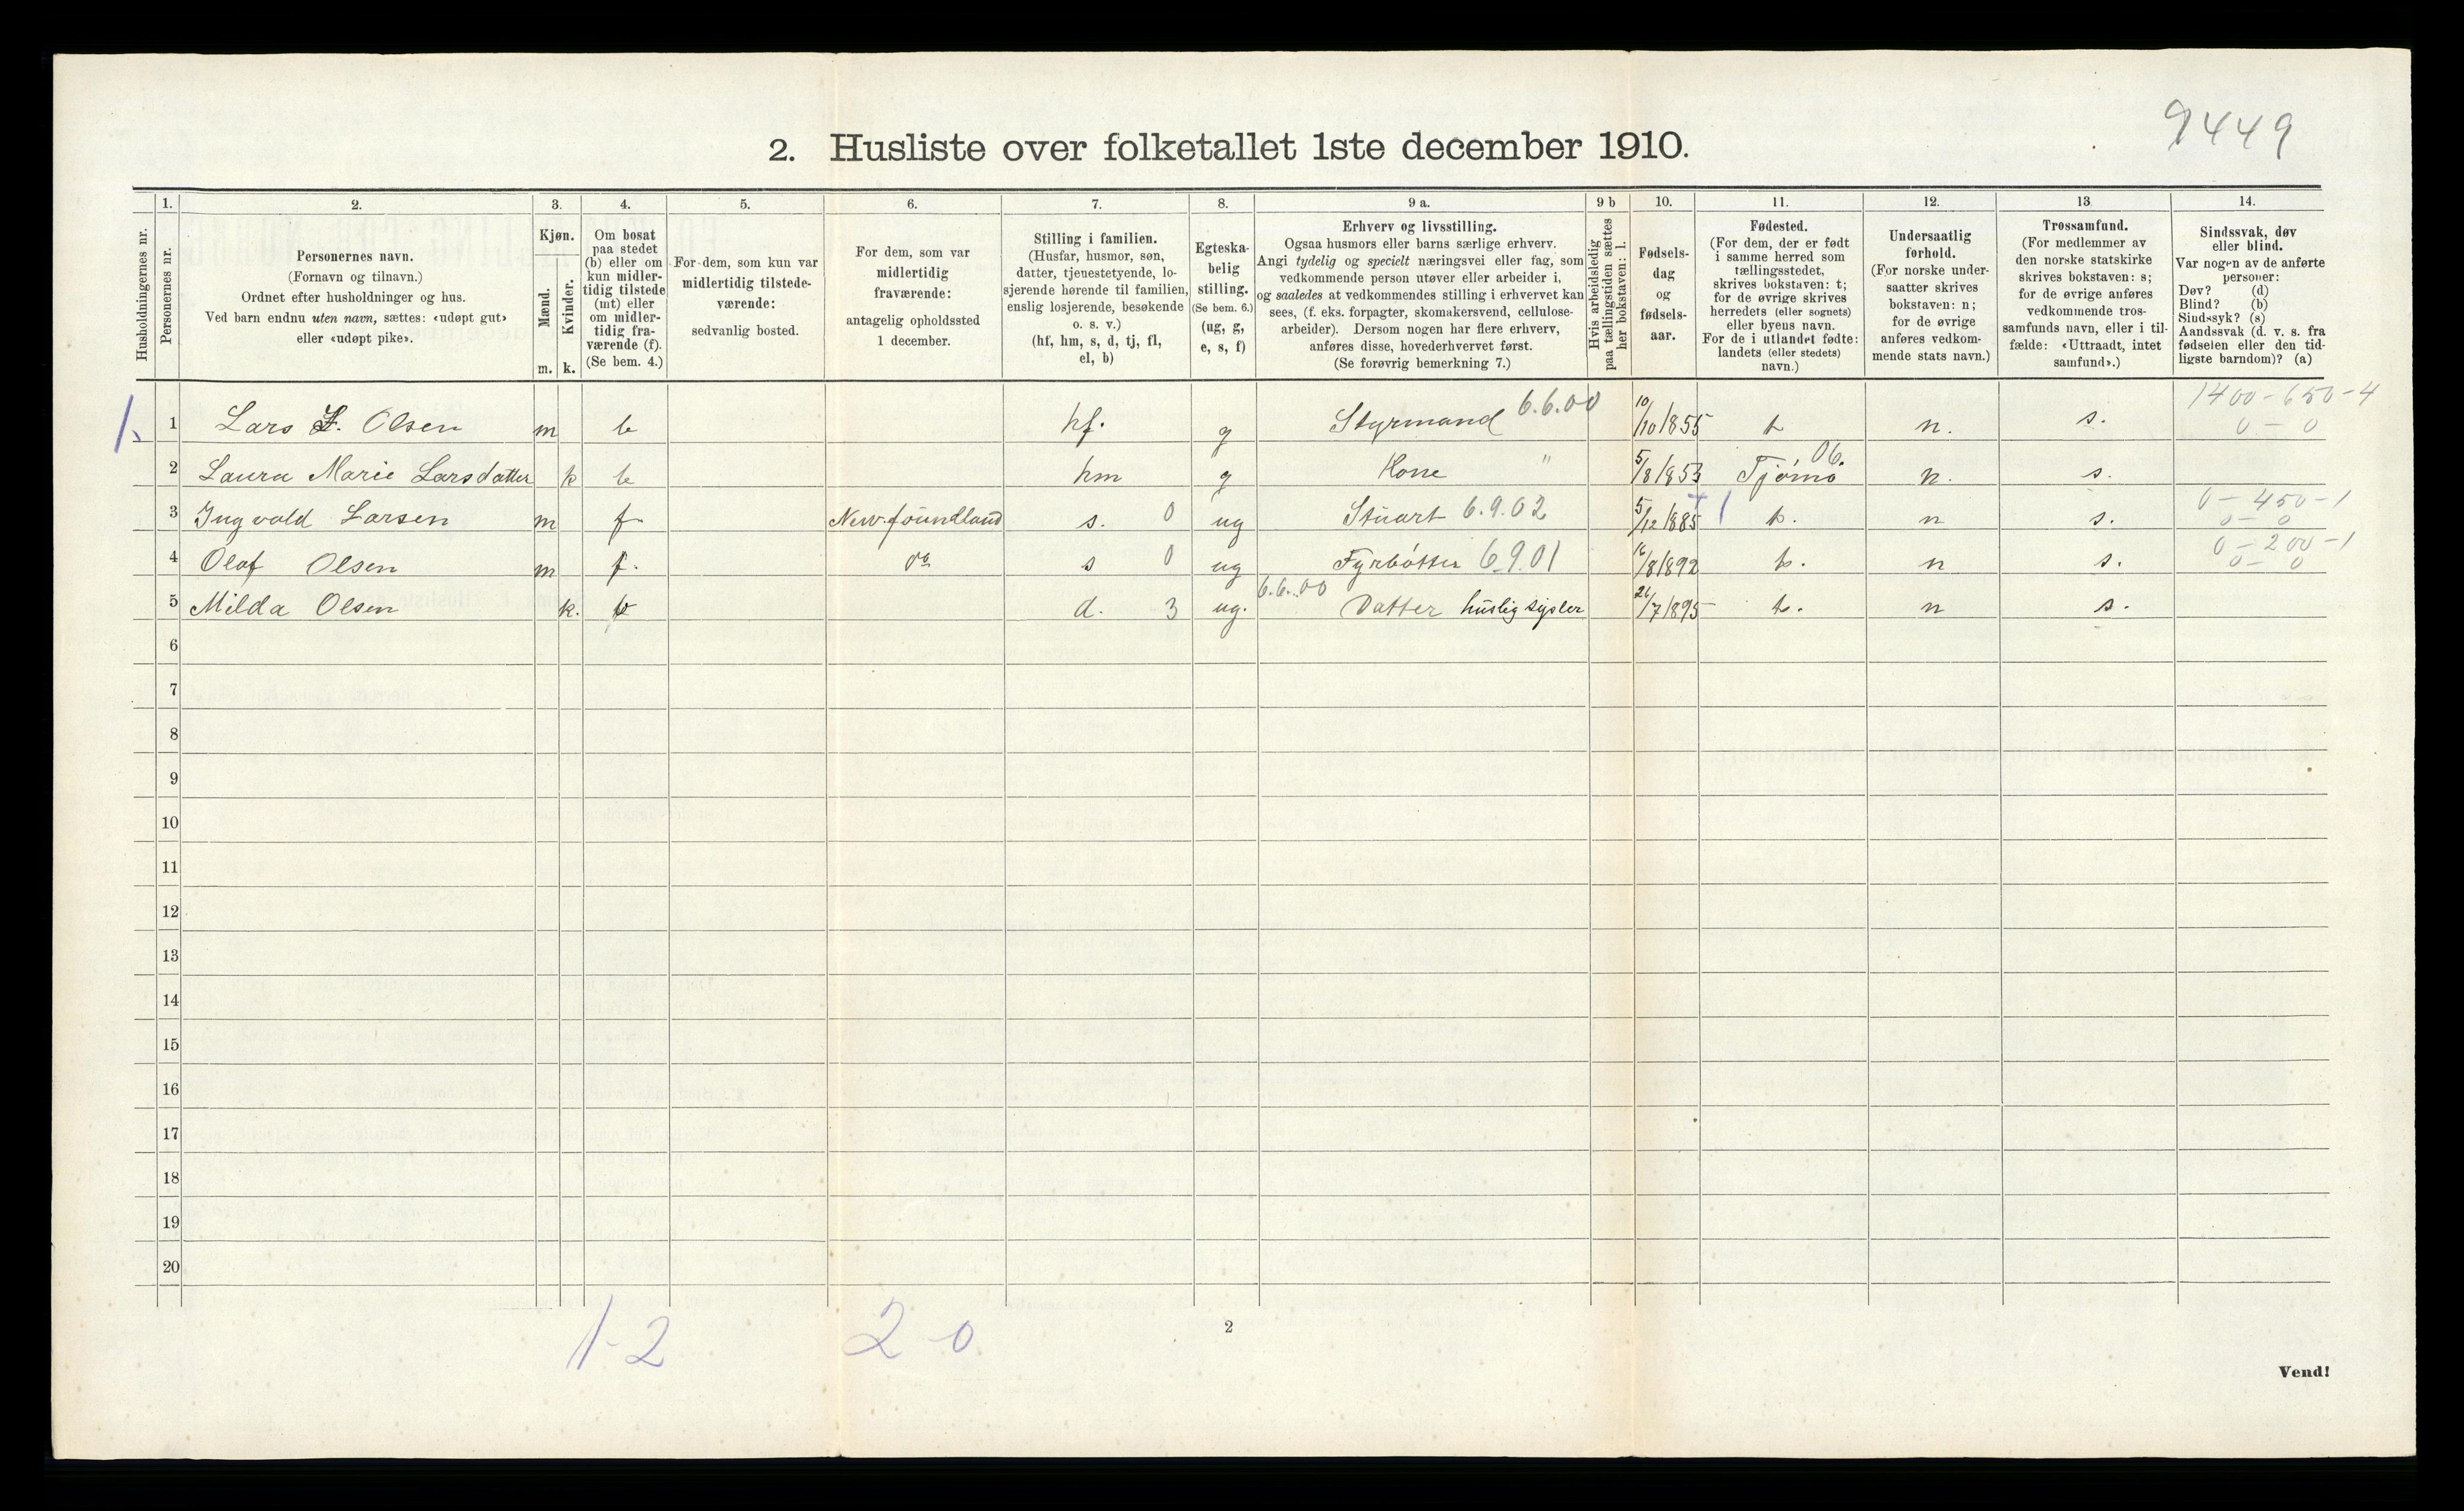 9449
2. Husliste over folketallet 1ste december 1910.
Husholdningernes nr.
1.
Personernes nr.
2.
Personernes navn.
(Fornavn og tilnavn.)
Ordnet efter husholdninger og hus.
Ved barn endnu uten navn, sættes: «udøpt gut»
eller «udøpt pike».
3.
Kjøn.
Mænd.
Kvinder.
m. k.
4.
Om bosat
paa stedet
(b) eller om
kun midler-
tidig tilstede
(mt) eller
om midler-
tidig fra-
værende (f).
(Se bem. 4.)
5.
For dem, som kun var
midlertidig tilstede-
værende:
sedvanlig bosted.
6.
For dem, som var
midlertidig
fraværende:
antagelig opholdssted
1 december.
7.
Stilling i familien.
(Husfar, husmor, søn,
datter, tjenestetyende, lo-
sjerende hørende til familien,
enslig losjerende, besøkende
o. s. v.)
(hf, hm, s, d, tj, fl,
el, b)
8.
Egteska-
belig
stilling.
(Se bem. 6.)
(ug, g,
e, s, f)
9 a.
Erhverv og livsstilling.
Ogsaa husmors eller barns særlige erhverv.
Angi tydelig og specielt næringsvei eller fag, som
vedkommende person utøver eller arbeider i,
og saaledes at vedkommendes stilling i erhvervet kan
sees, (f. eks. forpagter, skomakersvend, cellulose-
arbeider). Dersom nogen har flere erhverv,
anføres disse, hovederhvervet først.
(Se forøvrig bemerkning 7.)
9 b
Hvis arbeidsledig
paa tællingstiden sættes
her bokstaven: l.
10.
Fødsels-
dag
og
fødsels-
aar.
11.
Fødested.
(For dem, der er født
i samme herred som
tællingsstedet,
skrives bokstaven: t;
for de øvrige skrives
herredets (eller sognets)
eller byens navn.
For de i utlandet fødte:
landets (eller stedets)
navn.)
12.
Undersaatlig
forhold.
(For norske under-
saatter skrives
bokstaven: n;
for de øvrige
anføres vedkom-
mende stats navn.)
13
Trossamfund.
(For medlemmer av
den norske statskirke
skrives bokstaven: s;
for de øvrige anføres
vedkommende tros-
samfunds navn, eller i til-
fælde: «Uttraadt, intet
samfund».)
14.
Sindssvak, døv
eller blind.
Var nogen av de anførte
personer:
Døv? (d)
Blind? (b)
Sindssyk? (s)
Aandssvak (d. v. s. fra
fødselen eller den tid-
ligste barndom)? (a)
1. 1 Lars L. Olsen m b hf. g Styrmand 6.6.00 10/10 1855 t n. s. 1400-650-4
0 - 0
2 Laura Marie Larsdatter k b hm g Kone " 5/8 1853 Tjømø 06. n. s.
3 Ingvald Larsen m f New-foundland s. 0 ug Stuart 6.9.02 5/12 1885 t. n s. 0-450-1
0 - 0
4 Olaf Olsen m f. do s 0 ug Fyrbøtter 6.9.01 16/8 1892 t. n s. 0-200-1
0 - 0
5 Milda Olsen k. b d. 3 ug. 6.6.00 Datter huslig sysler 26/7 1895 t. n s.
6
7
8
9
10
11
12
13
14
15
16
17
18
19
20
1-2 2-0
2
Vend!